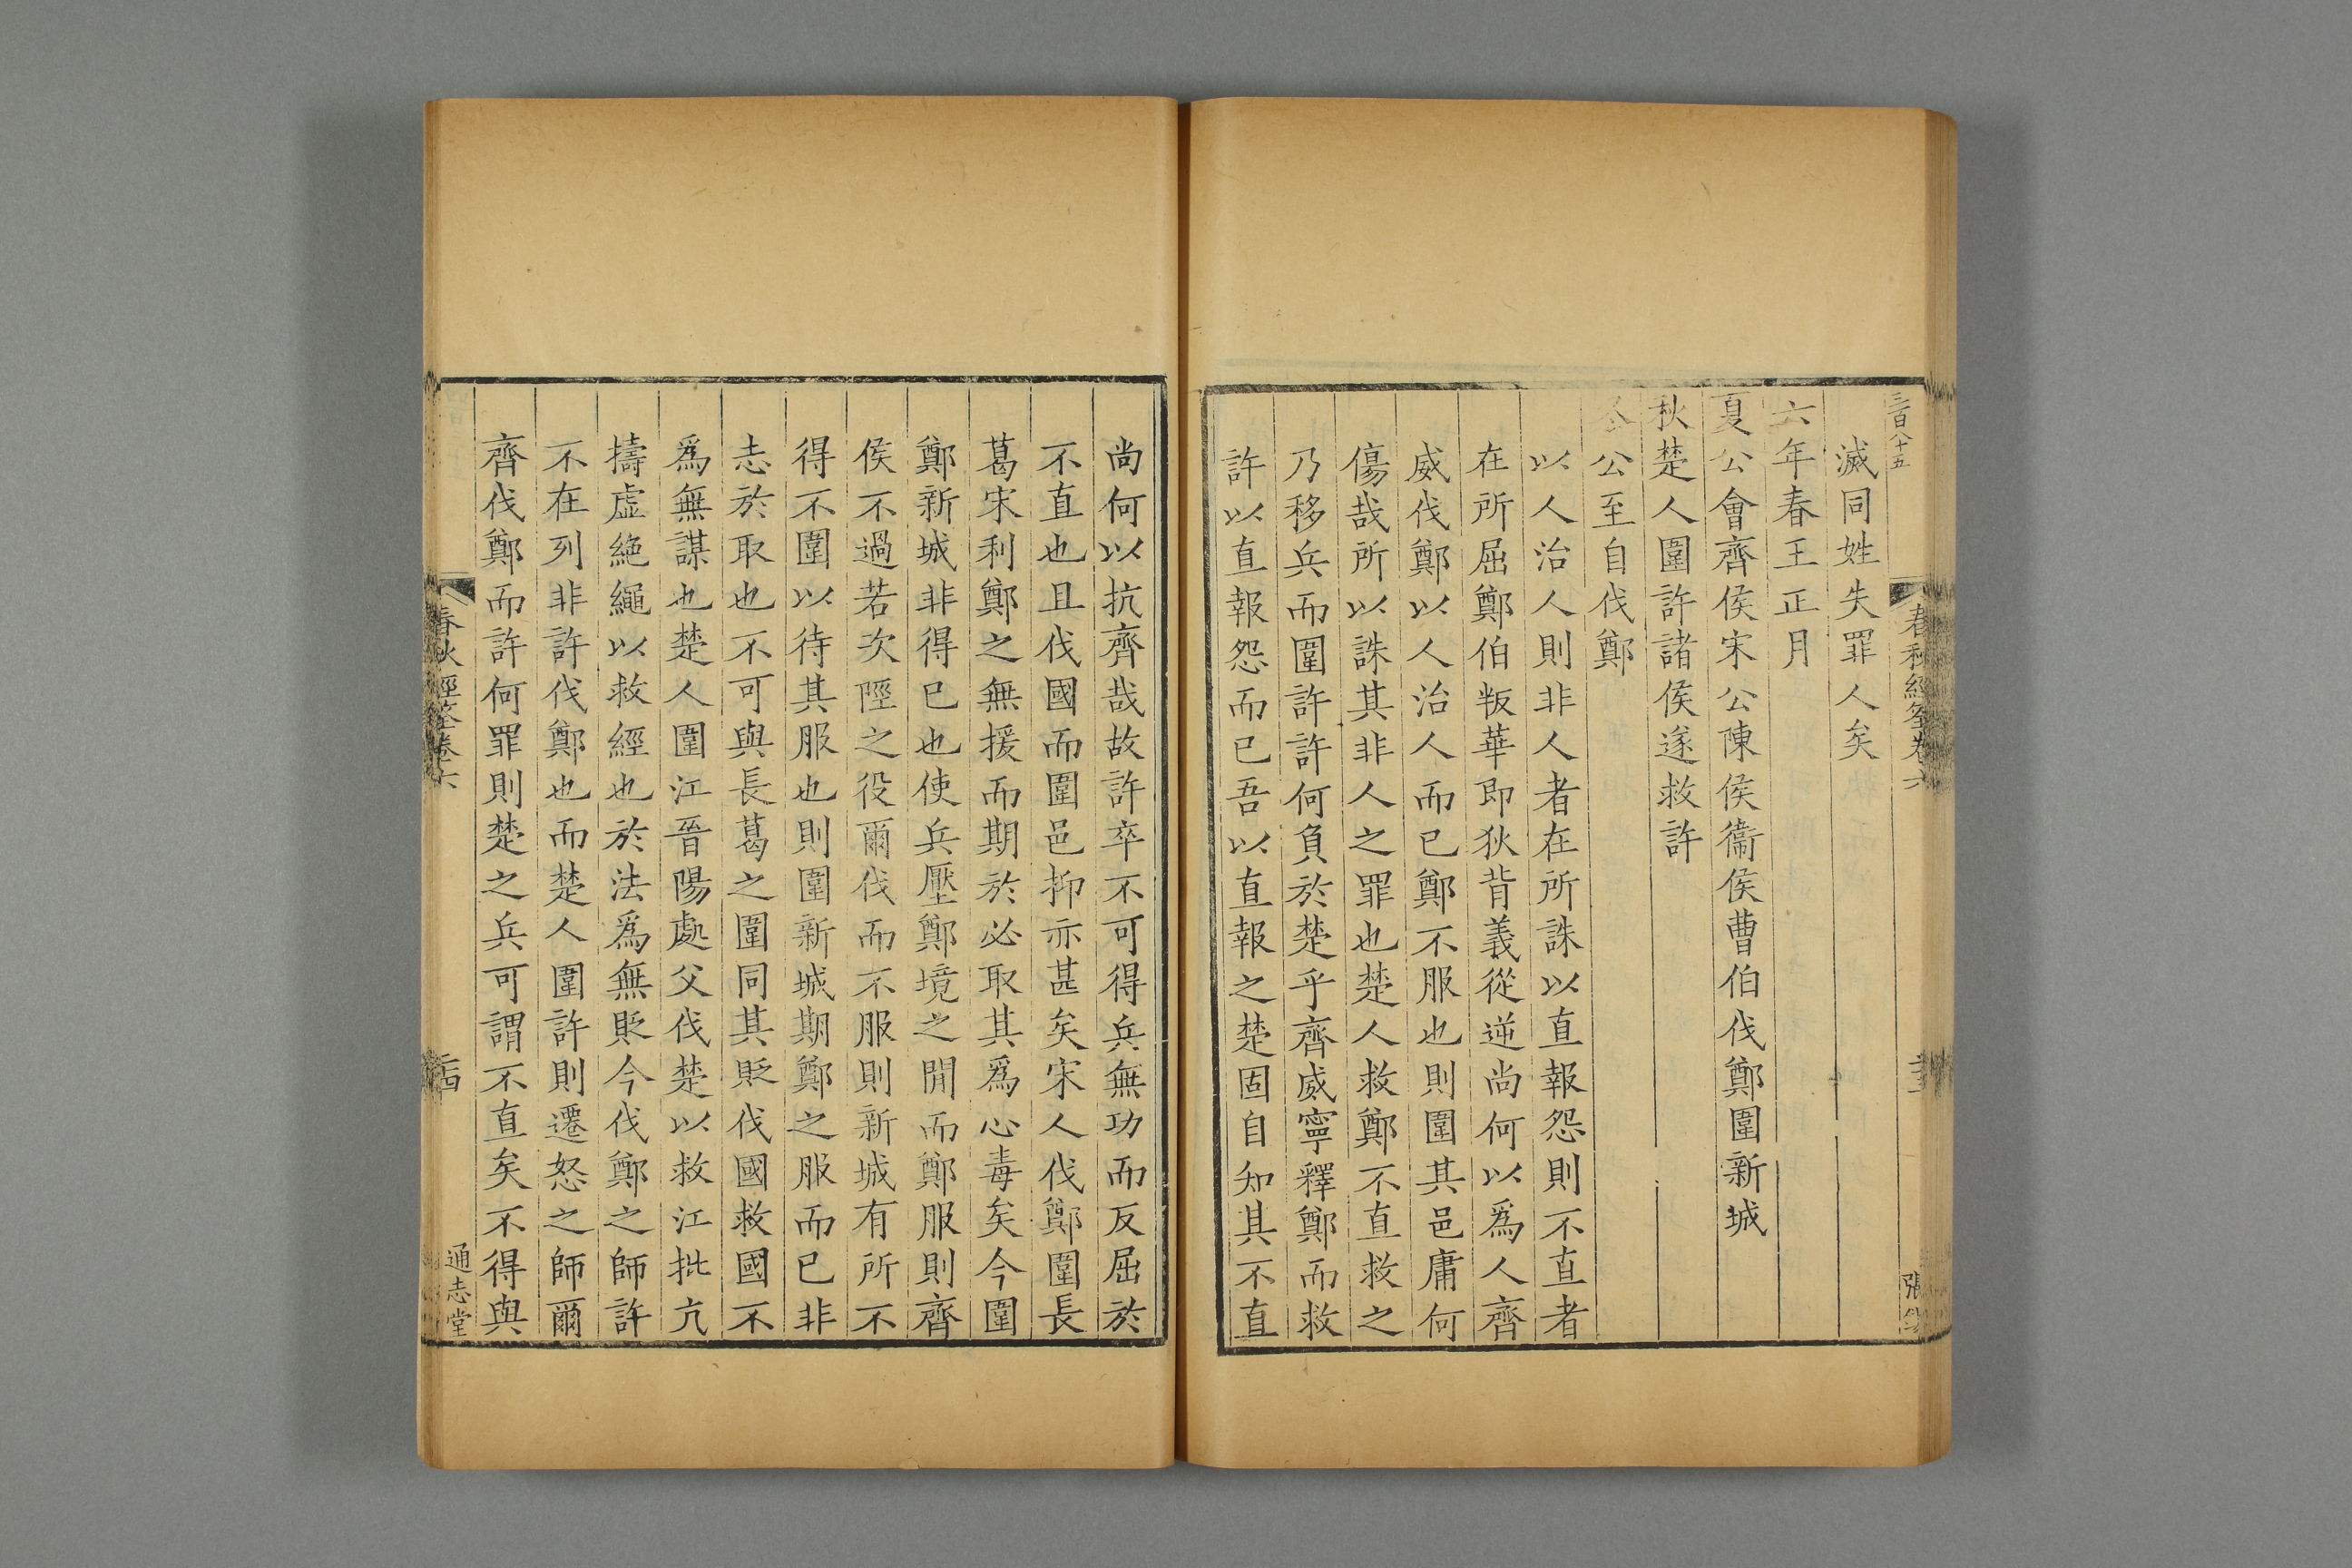 三百八十五
春秋經筌卷六
滅同姓失罪人矣
六年春王正月
夏公會齊侯宋公陳侯衞侯曹伯伐鄭圍新城
秋楚人圍許諸侯遂救許
冬公至自伐鄭
以人治人則非人者在所誅以直報怨則不直者
在所屈鄭伯叛華即狄背義從逆尚何以爲人齊
威伐鄭以人治人而已鄭不服也則圍其邑庸何
傷哉所以誅其非人之罪也楚人救鄭不直救之
乃移兵而圍許許何負於楚乎齊威寧釋鄭而救
許以直報怨而已吾以直報之楚固自知其不直
尚何以抗齊哉故許卒不可得兵無功而反屈於
不直也且伐國而圍邑抑亦甚矣宋人伐鄭圍長
葛宋利鄭之無援而期於必取其爲心毒矣今圍
鄭新城非得已也使兵壓鄭境之閒而鄭服則齊
侯不過若次陘之役爾伐而不服則新城有所不
得不圍以待其服也則圍新城期鄭之服而已非
志於取也不可與長葛之圍同其貶伐國救國不
爲無謀也楚人圍江晉陽處父伐楚以救江批亢
擣虛絶繩以救經也於法爲無貶今伐鄭之師許
不在列非許伐鄭也而楚人圍許則遷怒之師爾
齊伐鄭而許何罪則楚之兵可謂不直矣不得與
春秋經筌卷六
二四
通志堂